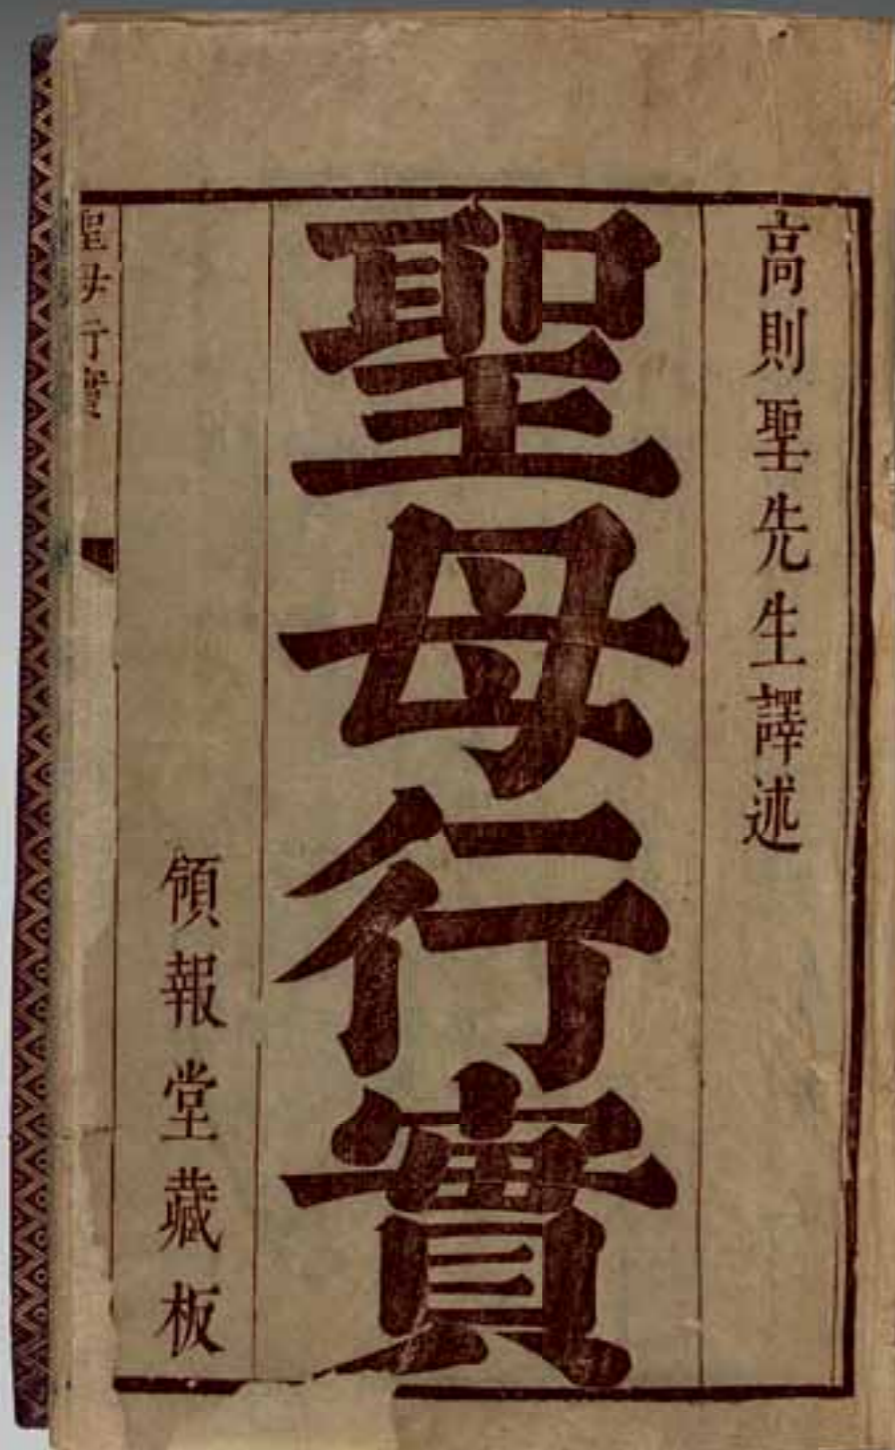 高則聖先生譯述
聖母行實
領報堂藏板
聖母行實